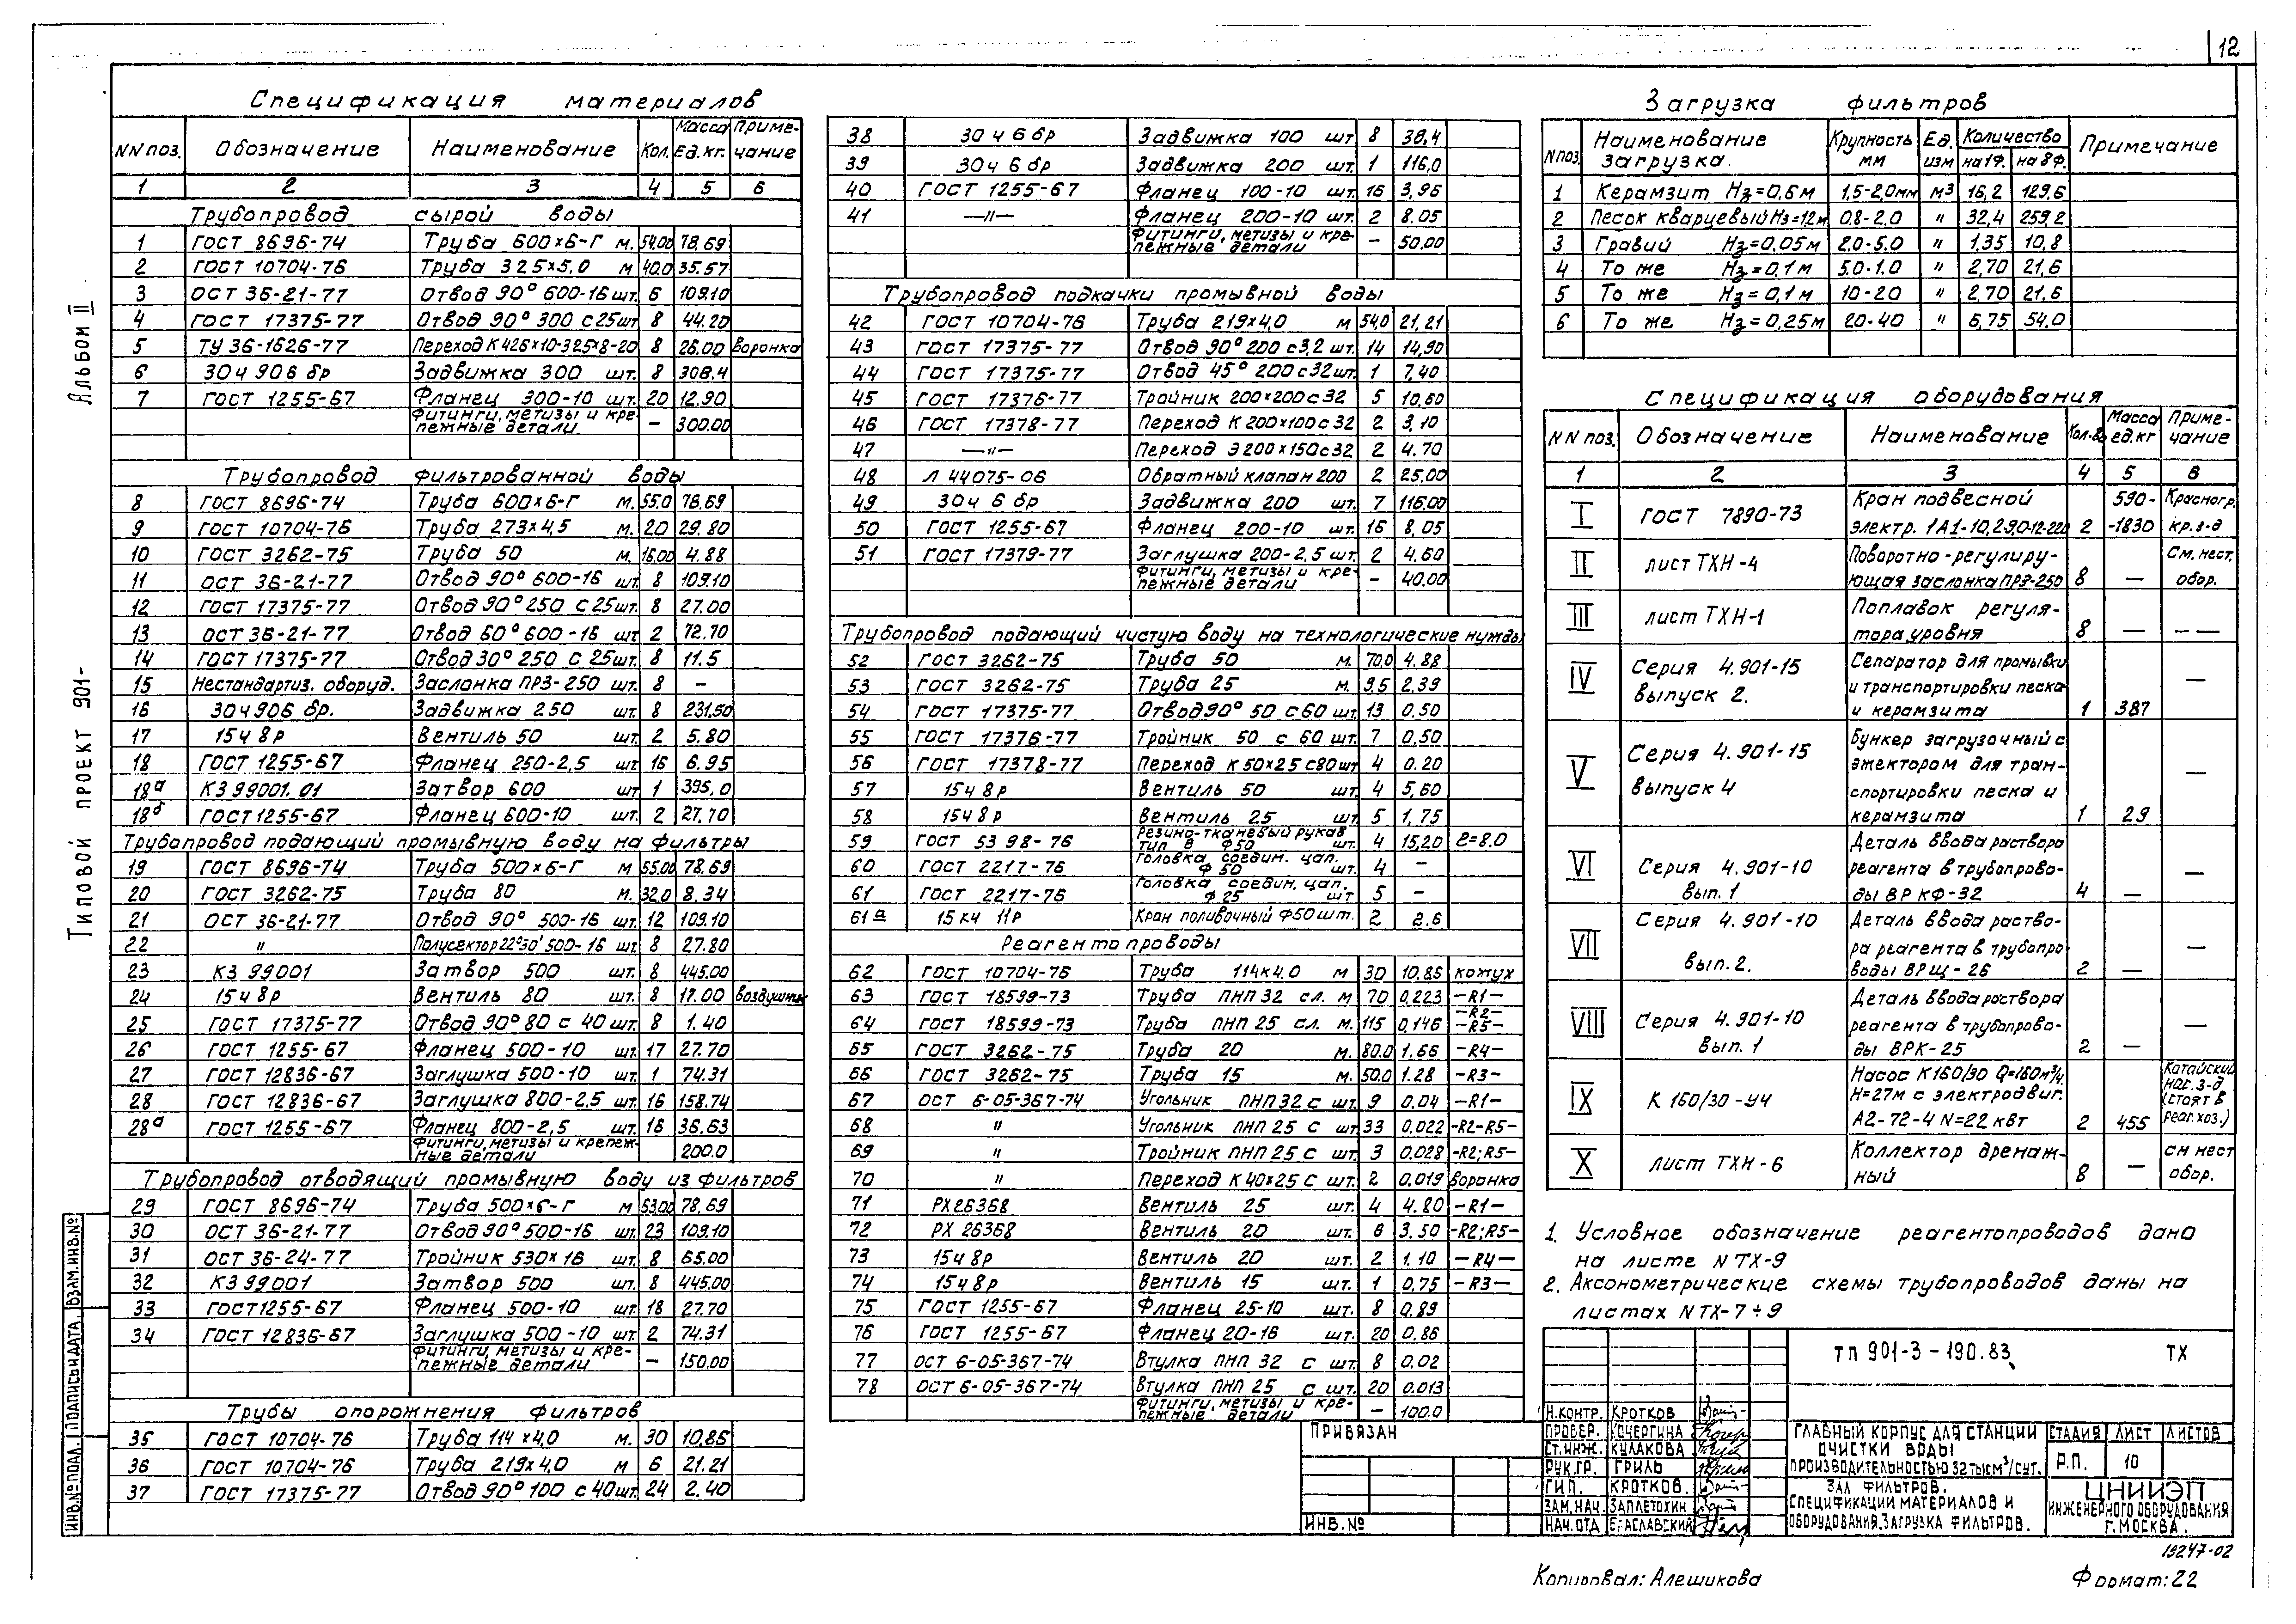 12
Альбом II
Типовой проект 901-
Спецификация материалов
NN поз. Обозначение Наименование Кол. Масса Ед.кг. Примечание
1 2 3 4 5 6
Трубопровод сырой воды
1 ГОСТ 8696-74 Труба 600×6-Г м. 54.00 78.69
2 ГОСТ 10704-76 Труба 325×5,0 м 40.0 35.57
3 ОСТ 36-21-77 Отвод 90° 600-16 шт. 6 109.10
4 ГОСТ 17375-77 Отвод 90° 300 с 25 шт 8 44.20
5 ТУ 36-1626-77 Переход К 426×10-325×8-20 8 26.00 воронка
6 30ч 906 бр Задвижка 300 шт. 8 308.4
7 ГОСТ 1255-67 Фланец 300-10 шт. 20 12.90
Фитинги, метизы и крепежные детали – 300.00
Трубопровод фильтрованной воды
8 ГОСТ 8696-74 Труба 600×6-Г м. 55.0 78.69
9 ГОСТ 10704-76 Труба 273×4,5 м. 20 29.80
10 ГОСТ 3262-75 Труба 50 м. 16.00 4.88
11 ОСТ 36-21-77 Отвод 90° 600-16 шт. 8 109.10
12 ГОСТ 17375-77 Отвод 90° 250 с 25 шт. 8 27.00
13 ОСТ 36-21-77 Отвод 60° 600-16 шт 2 72.70
14 ГОСТ 17375-77 Отвод 30° 250 с 25 шт. 8 11.5
15 Нестандартиз. оборуд. Заслонка ПРЗ-250 шт. 8 –
16 30ч 906 бр. Задвижка 250 шт. 8 231,50
17 15ч 8р Вентиль 50 шт. 2 5.80
18 ГОСТ 1255-67 Фланец 250-2,5 шт 16 6.95
18а КЗ 99001.01 Затвор 600 шт 1 395,0
18б ГОСТ 1255-67 Фланец 600-10 шт. 2 27,70
Трубопровод подающий промывную воду на фильтры
19 ГОСТ 8696-74 Труба 500×6-Г м 55.00 78.69
20 ГОСТ 3262-75 Труба 80 м. 32.0 8.34
21 ОСТ 36-21-77 Отвод 90° 500-16 шт. 12 109.10
22 " Полусектор 22°30' 500-16 шт 8 27.80
23 КЗ 99001 Затвор 500 шт. 8 445.00
24 15ч 8р Вентиль 80 шт. 8 17.00 воздушн.
25 ГОСТ 17375-77 Отвод 90° 80 с 40 шт. 8 1.40
26 ГОСТ 1255-67 Фланец 500-10 шт. 17 27.70
27 ГОСТ 12836-67 Заглушка 500-10 шт. 1 74.31
28 ГОСТ 12836-67 Заглушка 800-2.5 шт. 16 158.74
28а ГОСТ 1255-67 Фланец 800-2,5 шт. 16 36.63
Фитинги, метизы и крепежные детали 200.0
Трубопровод отводящий промывную воду из фильтров
29 ГОСТ 8696-74 Труба 500×6-Г м 63.00 78.69
30 ОСТ 36-21-77 Отвод 90° 500-16 шт. 23 109.10
31 ОСТ 36-24-77 Тройник 530×16 шт. 8 65.00
32 КЗ 99001 Затвор 500 шт. 8 445.00
33 ГОСТ 1255-67 Фланец 500-10 шт. 18 27.70
34 ГОСТ 12836-67 Заглушка 500-10 шт. 2 74.31
Фитинги, метизы и крепежные детали – 150.00
Трубы опорожнения фильтров
35 ГОСТ 10704-76 Труба 114×4,0 м. 30 10.85
36 ГОСТ 10704-76 Труба 219×4,0 м 6 21.21
37 ГОСТ 17375-77 Отвод 90° 100 с 40 шт. 24 2.40
38 30ч 6 бр Задвижка 100 шт 8 38,4
39 30ч 6 бр Задвижка 200 шт. 1 116,0
40 ГОСТ 1255-67 Фланец 100-10 шт. 16 3,96
41 —"— Фланец 200-10 шт. 2 8.05
Фитинги, метизы и крепежные детали – 50.00
Трубопровод подкачки промывной воды
42 ГОСТ 10704-76 Труба 219×4,0 м 54,0 21,21
43 ГОСТ 17375-77 Отвод 90° 200 с 3,2 шт. 14 14,90
44 ГОСТ 17375-77 Отвод 45° 200 с 32 шт. 1 7,40
45 ГОСТ 17376-77 Тройник 200×200 с 32 5 10,60
46 ГОСТ 17378-77 Переход К 200×100 с 32 2 3,10
47 —"— Переход Э 200×150 с 32 2 4.70
48 Л 44075-06 Обратный клапан 200 2 25.00
49 30ч 6 бр Задвижка 200 шт. 7 116.00
50 ГОСТ 1255-67 Фланец 200-10 шт. 16 8,05
51 ГОСТ 17379-77 Заглушка 200-2,5 шт. 2 4.60
Фитинги, метизы и крепежные детали – 40.00
Трубопровод подающий чистую воду на технологические нужды
52 ГОСТ 3262-75 Труба 50 м. 70,0 4.88
53 ГОСТ 3262-75 Труба 25 м. 9.5 2.39
54 ГОСТ 17375-77 Отвод 90° 50 с 60 шт 13 0.50
55 ГОСТ 17376-77 Тройник 50 с 60 шт. 7 0.50
56 ГОСТ 17378-77 Переход К 50×25 с 80 шт 4 0.20
57 15ч 8р Вентиль 50 шт. 4 5,60
58 15ч 8р Вентиль 25 шт. 5 1,75
59 ГОСТ 5398-76 Резино-тканевый рукав тип В ф50 шт. 4 15,20 ℓ=8.0
60 ГОСТ 2217-76 Головка соедин. цап. ф 50 шт. 4 –
61 ГОСТ 2217-76 Головка соедин. цап. ф 25 шт 5 –
61а 15кч 11р Кран поливочный ф50 шт. 2 2.6
Реагентопроводы
62 ГОСТ 10704-76 Труба 114×4.0 м 30 10,85 кожух
63 ГОСТ 18599-73 Труба ПНП 32 сл. м 70 0,223 –R1–
64 ГОСТ 18599-73 Труба ПНП 25 сл. м. 115 0,146 –R2– –R5–
65 ГОСТ 3262-75 Труба 20 м. 80.0 1.66 –R4–
66 ГОСТ 3262-75 Труба 15 м. 50.0 1.28 –R3–
67 ОСТ 6-05-367-74 Угольник ПНП 32 с шт. 9 0.04 –R1–
68 " Угольник ПНП 25 с шт 33 0,022 –R2–R5–
69 " Тройник ПНП 25 с шт. 3 0,028 –R2;R5–
70 " Переход К 40×25 с шт. 2 0.019 воронка
71 РХ 26368 Вентиль 25 шт. 4 4.80 –R1–
72 РХ 26368 Вентиль 20 шт. 6 3.50 –R2;R5–
73 15ч 8р Вентиль 20 шт. 2 1.10 –R4–
74 15ч 8р Вентиль 15 шт. 1 0,75 –R3–
75 ГОСТ 1255-67 Фланец 25-10 шт. 8 0.89
76 ГОСТ 1255-67 Фланец 20-16 шт. 20 0,86
77 ОСТ 6-05-367-74 Втулка ПНП 32 с шт. 8 0.02
78 ОСТ 6-05-367-74 Втулка ПНП 25 с шт. 20 0.013
Фитинги, метизы и крепежные детали – 100.0
Загрузка фильтров
N поз. Наименование загрузка. Крупность мм Ед. изм Количество на 1Ф. на 8Ф. Примечание
1 Керамзит Hз=0,6м 1,5-2,0мм м³ 16,2 129,6
2 Песок кварцевый Hз=12м 0.8-2.0 " 32,4 259,2
3 Гравий Hз=0.05м 2.0-5.0 " 1,35 10,8
4 То же Hз=0,1м 5.0-1.0 " 2,70 21,6
5 То же Hз=0,1м 10-20 " 2,70 21.6
6 То же Hз=0,25м 20-40 " 6,75 54,0
Спецификация оборудования
NN поз. Обозначение Наименование Кол-во Масса ед.кг Примечание
1 2 3 4 5 6
I ГОСТ 7890-73 Кран подвесной электр. 1А1-10,2,90-12-220 2 590-1830 Красногр. кр. з-д
II лист ТХН-4 Поворотно-регулирующая заслонка ПРЗ-250 8 – См. нест. обор.
III лист ТХН-1 Поплавок регулятора уровня 8 – – –
IV Серия 4.901-15 выпуск 2. Сепаратор для промывки и транспортировки песка и керамзита 1 387 –
V Серия 4.901-15 выпуск 4 Бункер загрузочный с эжектором для транспортировки песка и керамзита 1 29 –
VI Серия 4.901-10 вып. 1 Деталь ввода раствора реагента в трубопроводы ВР КФ-32 4 – –
VII Серия 4.901-10 вып. 2. Деталь ввода раствора реагента в трубопроводы ВРЩ-26 2 – –
VIII Серия 4.901-10 вып. 1 Деталь ввода раствора реагента в трубопроводы ВРК-25 2 – –
IX К 160/30-У4 Насос К160/30 Q=160м³/ч H=27м с электродвиг. А2-72-4 N=22 кВт 2 455 Катайский нас. з-д (стоят в реаг. хоз.)
X лист ТХН-6 Коллектор дренажный 8 – см нест обор.
1. Условное обозначение реагентопроводов дано
на листе N ТХ-9
2. Аксонометрические схемы трубопроводов даны на
листах N ТХ-7÷9
ТП 901-3-190.83 ТХ
Н.КОНТР. КРОТКОВ
ПРОВЕР. КОЧЕРГИНА
СТ.ИНЖ. КУЛАКОВА
РУК.ГР. ГРИЛЬ
ГИП. КРОТКОВ.
ЗАМ.НАЧ. ЗАПЛЕТОХИН
НАЧ.ОТД
ГЛАВНЫЙ КОРПУС ДЛЯ СТАНЦИИ
ОЧИСТКИ ВОДЫ
ПРОИЗВОДИТЕЛЬНОСТЬЮ 32 ТЫС М³/СУТ.
СТАДИЯ ЛИСТ ЛИСТОВ
Р.П. 10
ЗАЛ ФИЛЬТРОВ.
СПЕЦИФИКАЦИИ МАТЕРИАЛОВ И
ОБОРУДОВАНИЯ. ЗАГРУЗКА ФИЛЬТРОВ.
ЦНИИЭП
ИНЖЕНЕРНОГО ОБОРУДОВАНИЯ
Г. МОСКВА.
ПРИВЯЗАН
ИНВ.№
ИНВ.№ ПОДЛ. ПОДПИСЬ И ДАТА ВЗАМ.ИНВ.№
19247-02
Копировал: Алешикова
Формат: 22